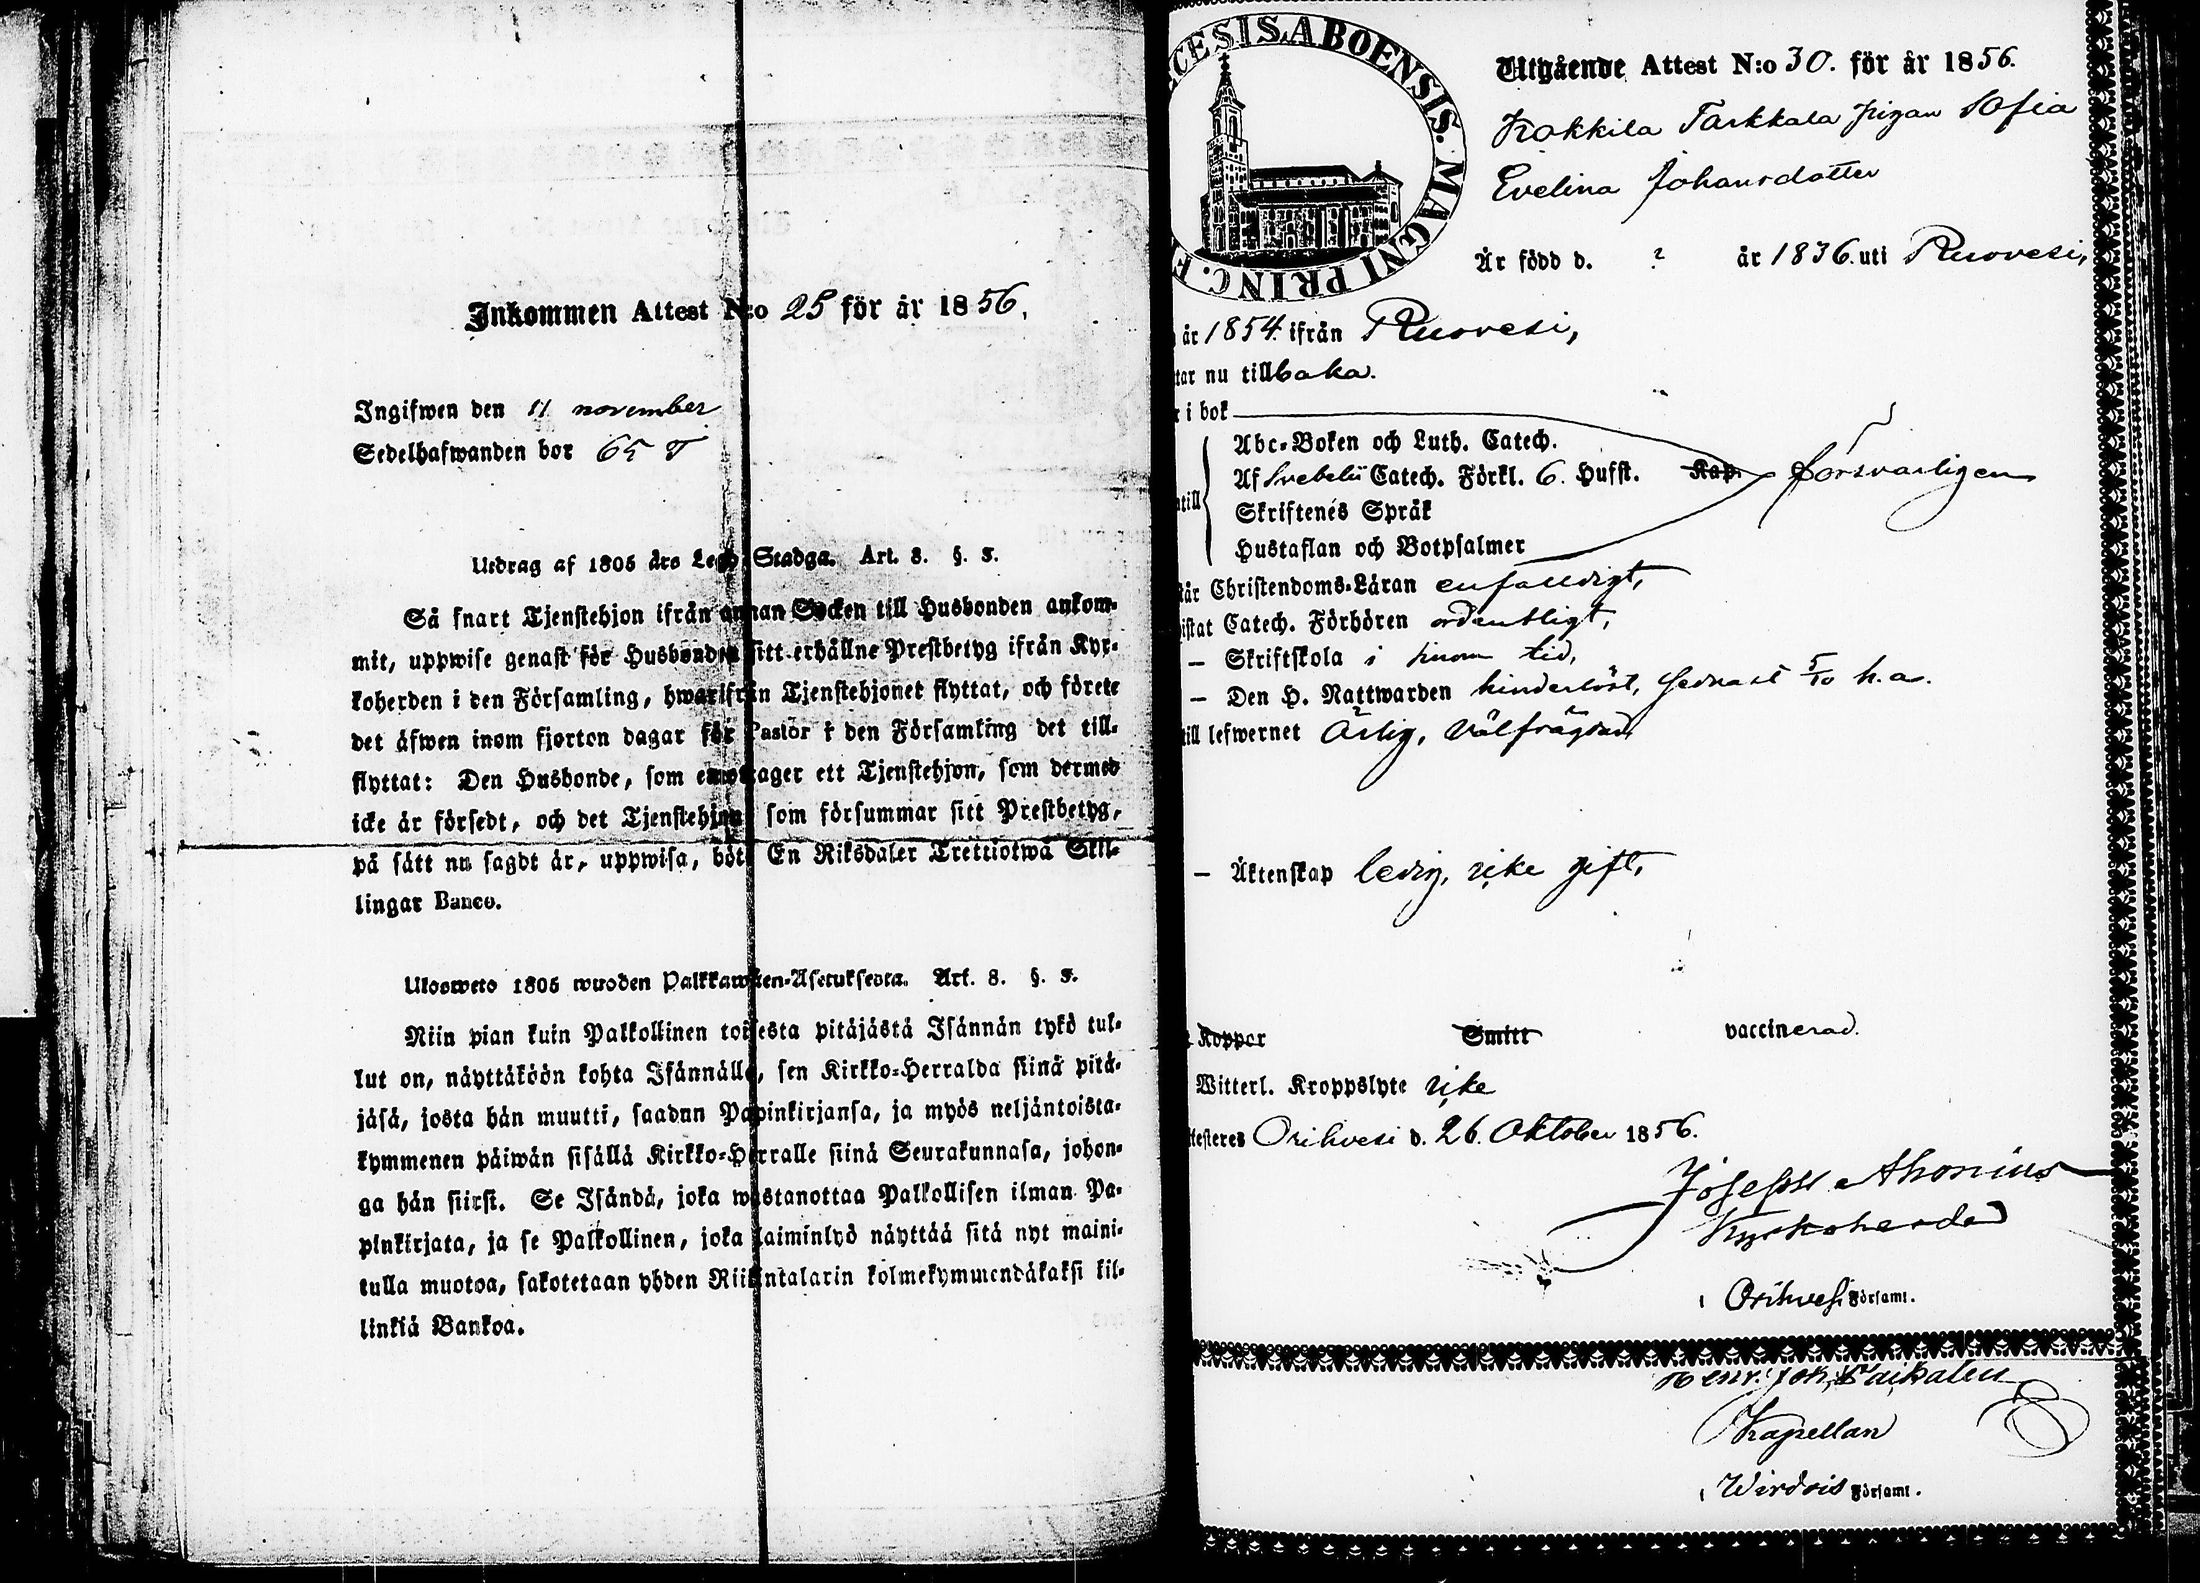 Inkommen Attest N:o 25 för år 1856.
Ingifwen den 11 november
Sedelhafwanden bor 65 T
Utdrag af 1805 års Lego Stadga. Art. 8. §. 5.
Så snart Tjenstehjon ifrån annan Socken till Husbonden ankom-
mit, uppwise genast för Husbonden sitt erhållne Prestbetyg ifrån Kyr-
koherden i den Församling, hwarifrån Tjenstehjonet flyttat, och förete
det äfwen inom fjorton dagar för Pastor i den Församling det till-
flyttat: Den Husbonde, som emottager ett Tjenstehjon, som dermed
icke är försedt, och det Tjenstehjon som försummar sitt Prestbetyg,
på sätt nu sagdt är, uppwisa, böte En Riksdaler Trettiotwå Skil-
lingar Banco.
Ulosweto 1805 wuoden Palkkawäen-Asetuksesta. Art. 8. §. 5.
Niin pian kuin Palkollinen toisesta pitäjästä Isännän tykö tul-
lut on, näyttäköön kohta Isännälle, sen Kirkko-Herralda siinä pitä-
jäsä, josta hän muutti, saadun Papinkirjansa, ja myös neljäntoista-
kymmenen päiwän sisällä Kirkko-Herralle siinä Seurakunnasa, johon-
ga hän siirsi. Se Isändä, joka wastanottaa Palkollisen ilman Pa-
pinkirjata, ja se Palkollinen, joka laiminlyö näyttää sitä nyt maini-
tulla muotoa, sakotetaan yhden Riikintalarin kolmekymmendäkaksi kil-
linkiä Bankoa.
CESIS ABOENSIS. MAGNI PRINC. F
Utgående Attest N:o 30. för år 1856.
Kokkila Tarkkala pigan Sofia
Evelina Johansdotter
Är född d. ? år 1836. uti Ruovesi,
år 1854. ifrån Ruovesi,
tar nu tillbaka.
r i bok
Abc-Boken och Luth. Catech.
Af Svebelii Catech. Förkl. 6. Hufst. Kap. försvarligen
Skriftenes Språk
Hustaflan och Botpsalmer
tår Christendoms-Läran enfaldigt,
istat Catech. Förhören ordentligt,
— Skriftskola i sinom tid,
— Den H. Nattwarden hinderlöst, sednast 5/10 h.a.
till lefwernet Ärlig, välfrägdad,
— Äktenskap ledig, icke gift,
Koppor Smitt vaccinerad.
Witterl. Kroppslyte icke
ttesteres Orihvesi d. 26. Oktober 1856.
Joseph Ahonius
Kyrkoherde
i Orihvesi Församl.
Henr. Joh.
Kapellan
i Wirdois Församl.